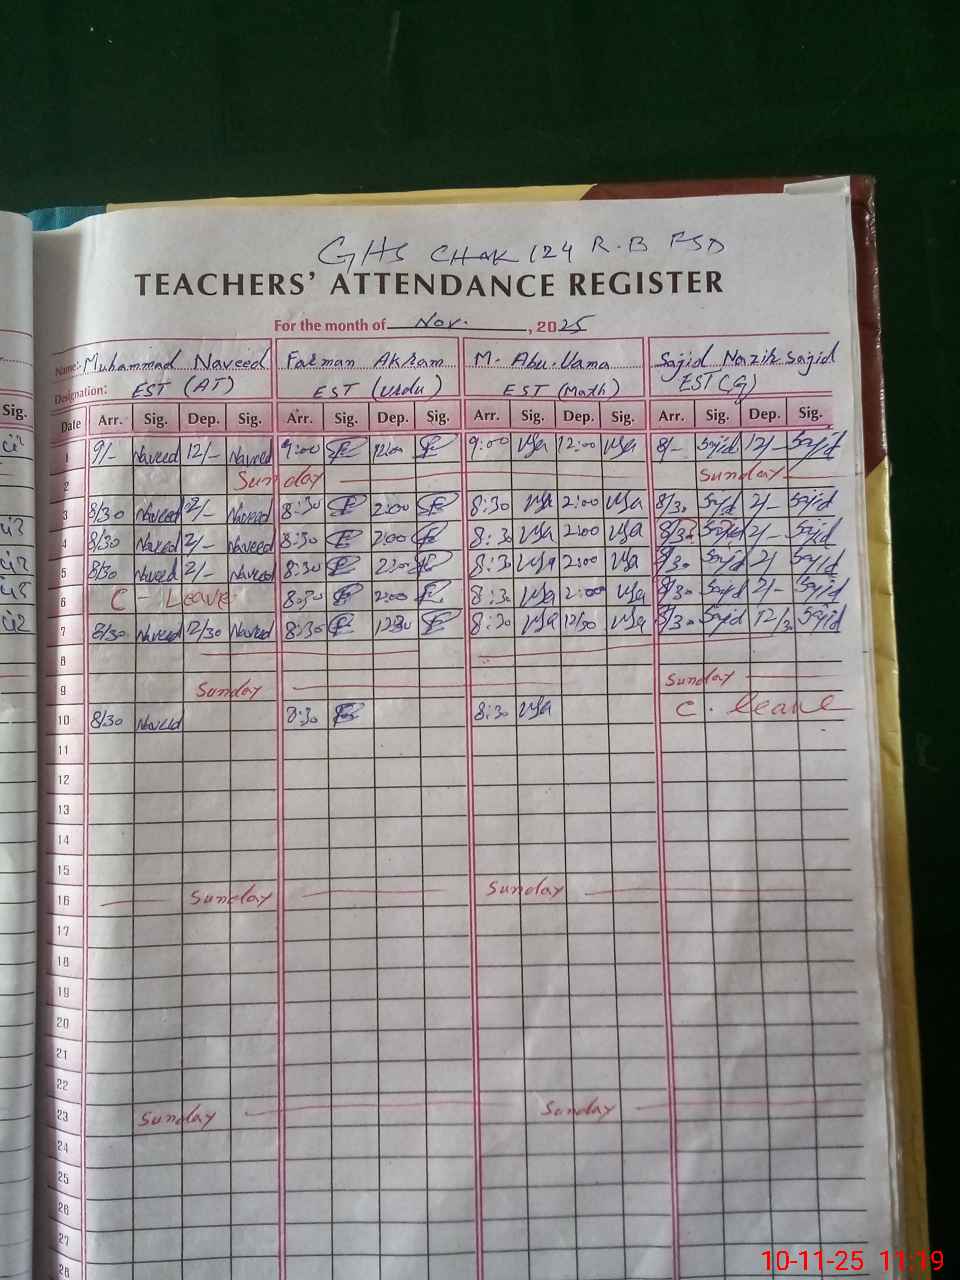 GHS CHAK 124 R.B FSD
TEACHERS' ATTENDANCE REGISTER
For the month of Nov. , 2025
Name: Muhammad Naveed Farman Akram M. Abu-Usama Sajid Nazir Sajid
Designation: EST (AT) EST (Urdu) EST (Math) EST (G)
Sig. Date Arr. Sig. Dep. Sig. Arr. Sig. Dep. Sig. Arr. Sig. Dep. Sig. Arr. Sig. Dep. Sig.
1 9/- Naveed 12/- Naveed 9:00 12:00 9:00 12:00 8/- Sajid 12/- Sajid
2 Sunday Sunday
3 8/30 Naveed 2/- Naveed 8:30 2:00 8:30 2:00 8/30 Sajid 2/- Sajid
4 8/30 Naveed 2/- Naveed 8:30 2:00 8:30 2:00 8/30 Sajid 2/- Sajid
5 8/30 Naveed 2/- Naveed 8:30 2:00 8:30 2:00 8/30 Sajid 2/ Sajid
6 C - Leave 8:30 2:00 8:30 2:00 8/30 Sajid 2/- Sajid
7 8/30 Naveed 12/30 Naveed 8:30 12:30 8:30 12/30 8/30 Sajid 12/30 Sajid
8
9 Sunday Sunday
10 8/30 Naveed 8:30 8:30 C. Leave
11
12
13
14
15
16 Sunday Sunday
17
18
19
20
21
22
23 Sunday Sunday
24
25
26
27
28
10-11-25 11:19